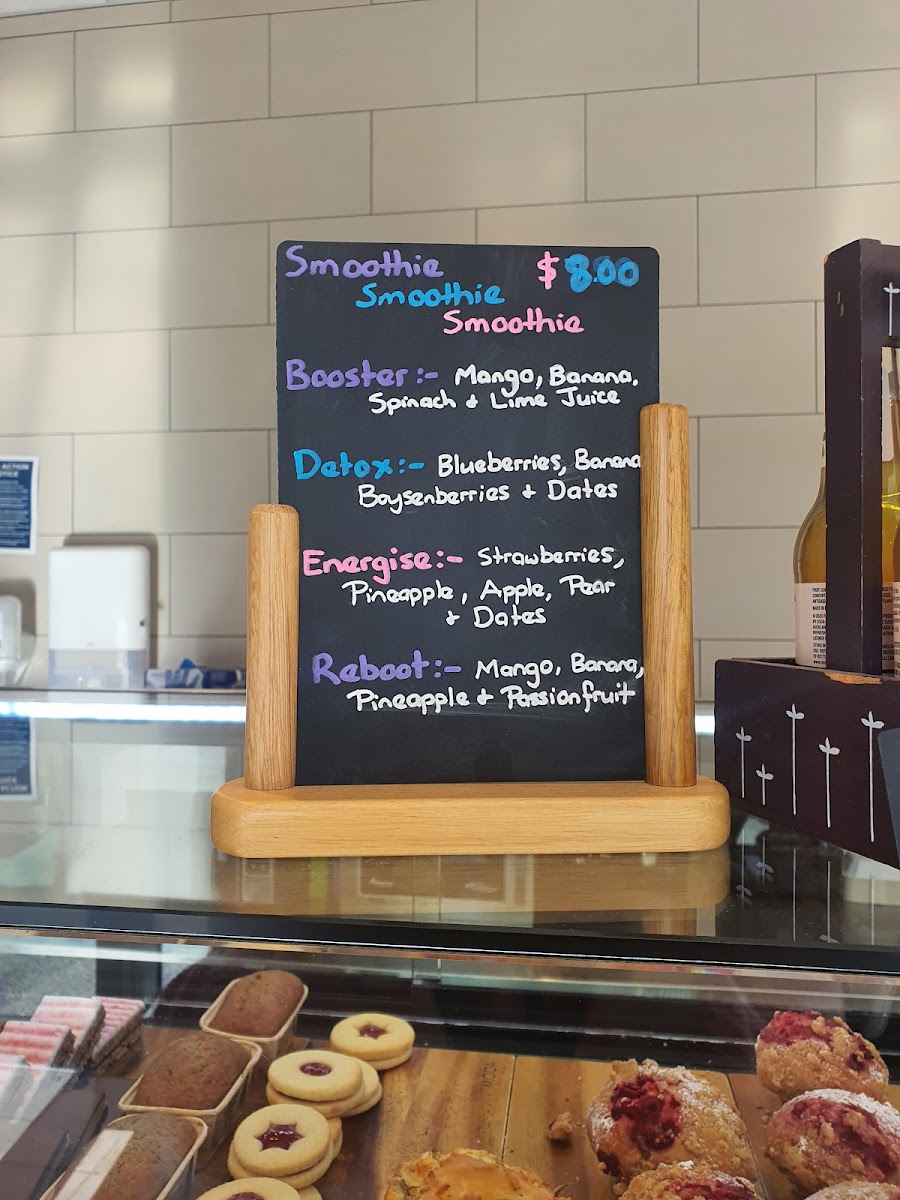 Smoothie $8.00
Smoothie
Smoothie
Booster:- Mango, Banana,
Spinach & Lime Juice
Detox:- Blueberries, Banana
Boysenberries & Dates
Energise:- Strawberries,
Pineapple, Apple, Pear
& Dates
Reboot:- Mango, Banana,
Pineapple & Passionfruit